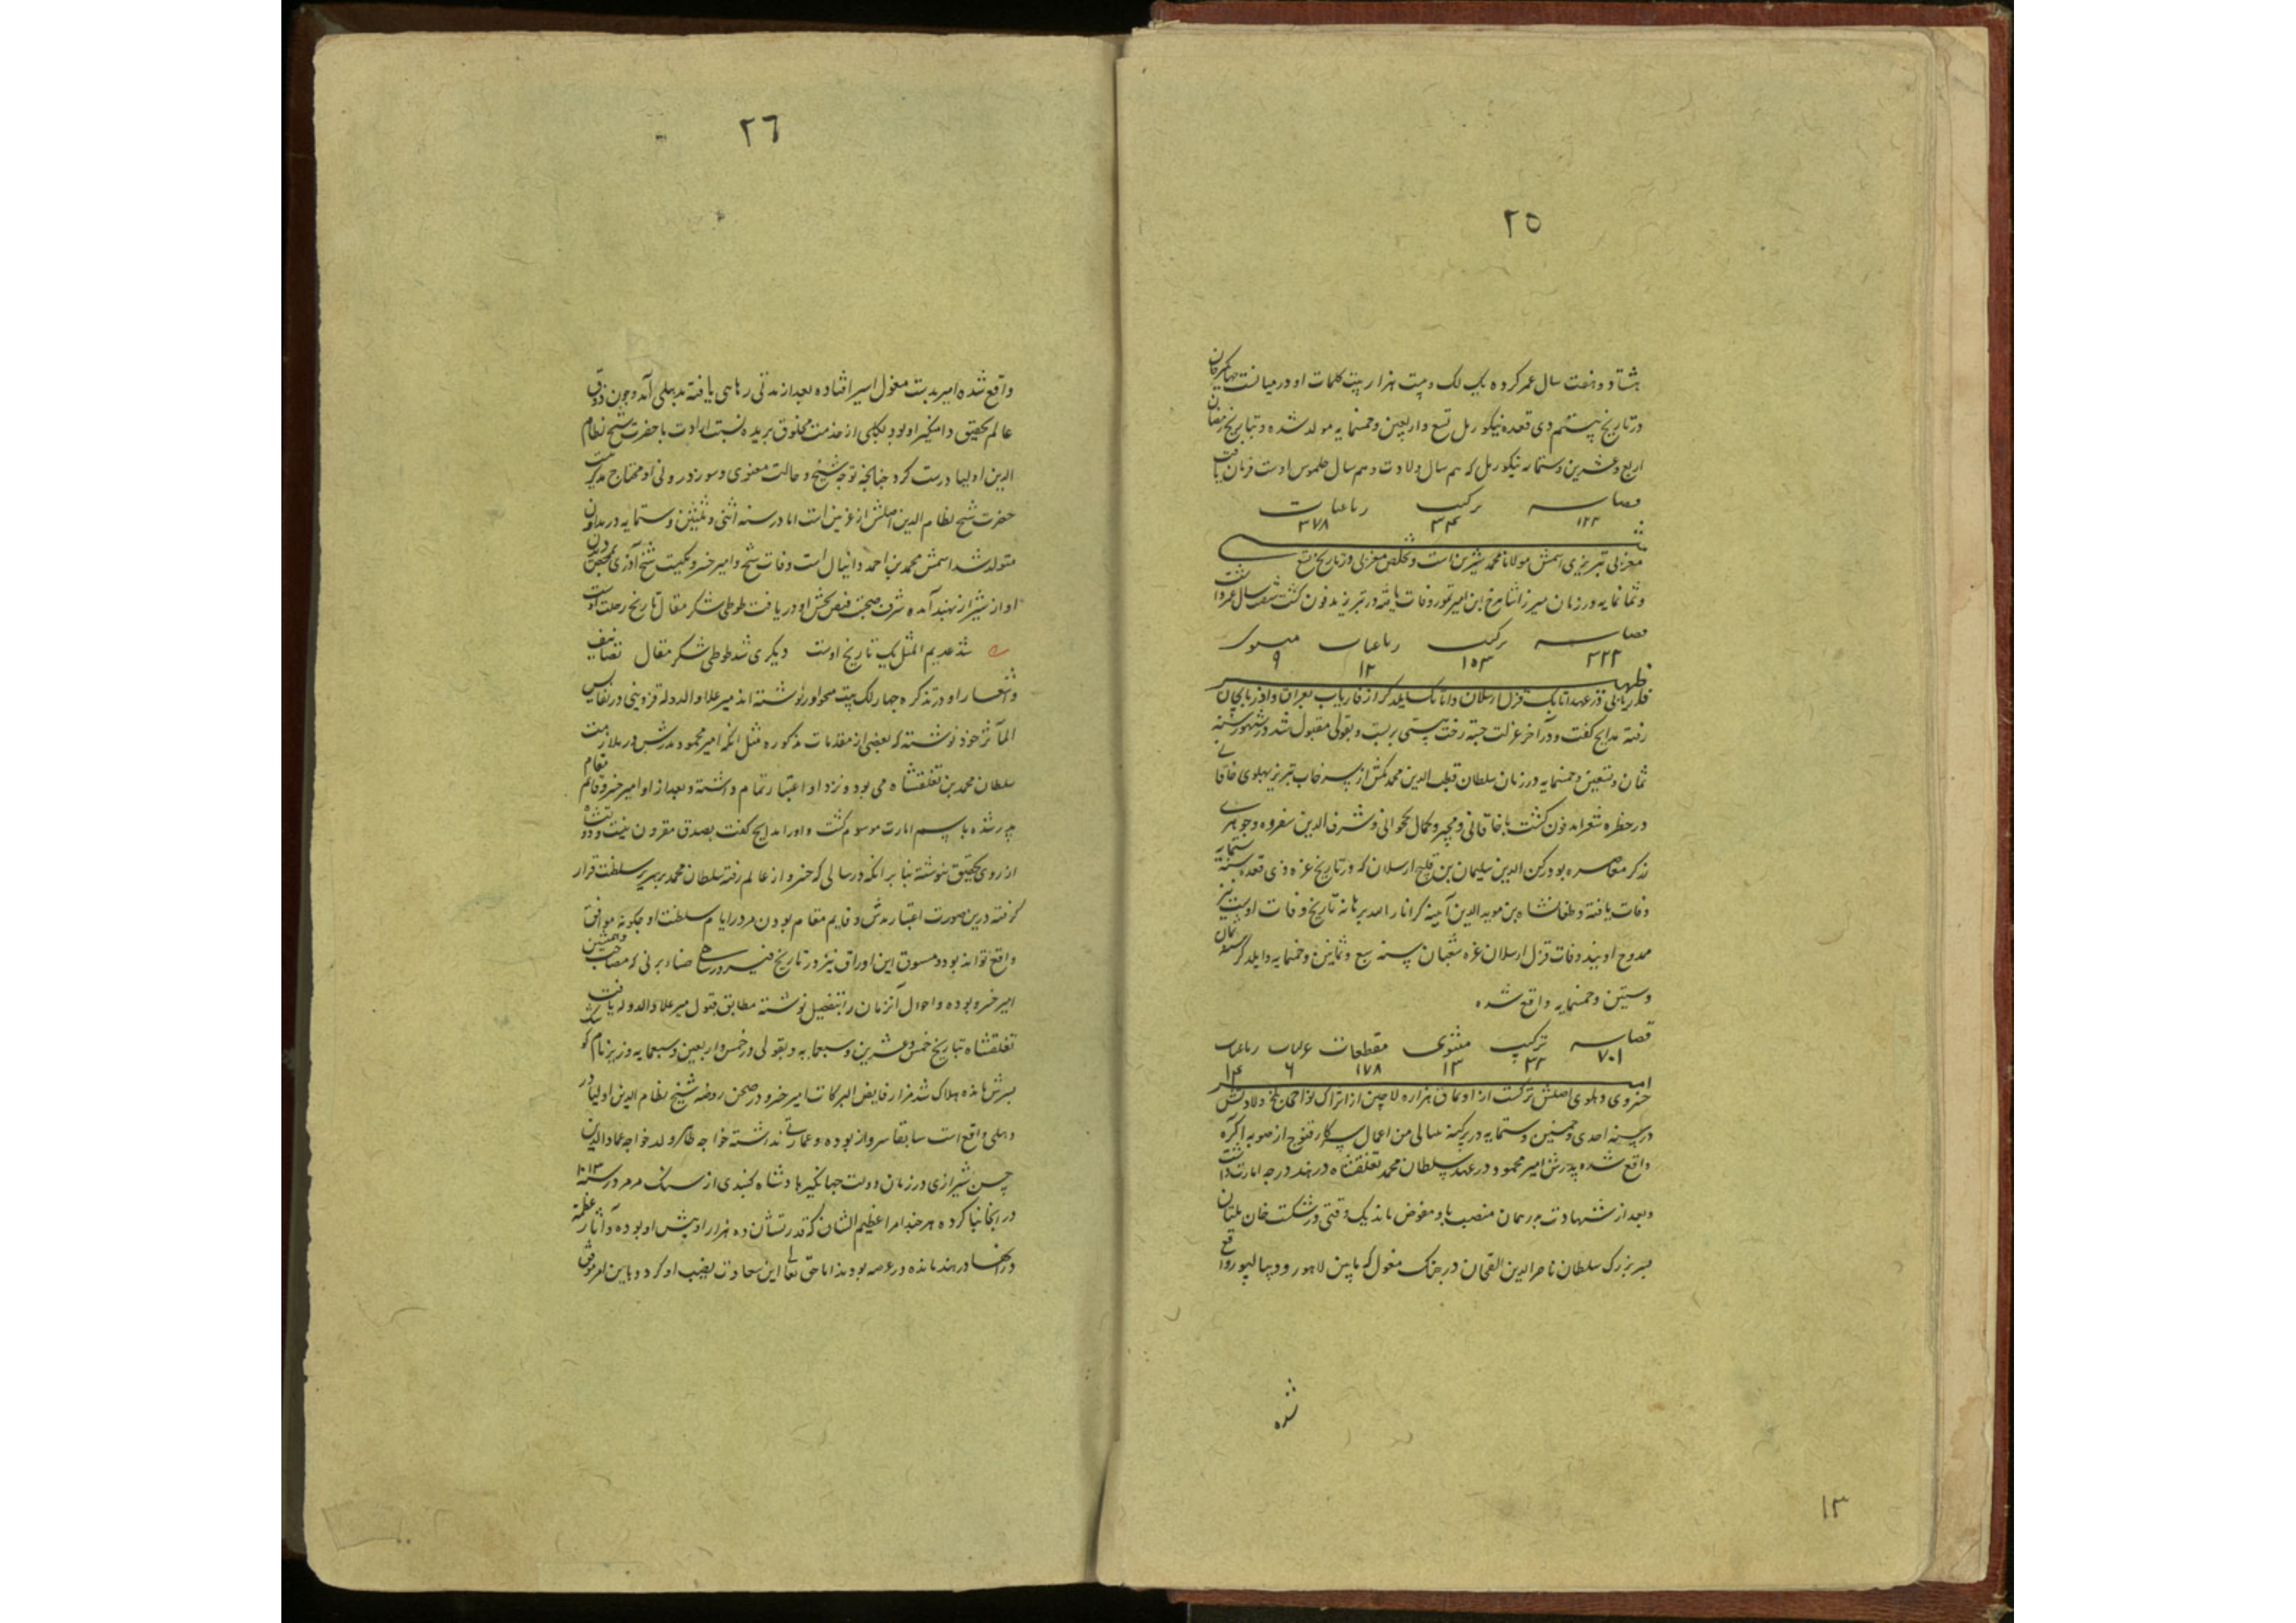 ٢٥
هشتاد و هفت سال عمر کرده یک لک و بیست هزار بیت کلمات او در میانست
در تاریخ بیستم ذی قعده نیکو ریل تسع و اربعین و خمسمایه مولد شده و بتاریخ رمضان
اربع و عشرین و ستمایه نیکو ریل که هم سال ولادت و هم سال جلوس اوست فرمان یافت
قصاید ترکیب رباعیات
١٢٢ ٣٤ ٣٧٨
مغربی تبریزی اسمش مولانا محمد شیرین است و تخلص مغربی در تاریخ تسع
و ثمانمایه در زمان میرزا شاهرخ ابن امیر تیمور وفات یافته در تبریز مدفون گشت شصت سال عمر داشت
قصاید ترکیب رباعیات مثنوی
٢٢٢ ١٥٣ ١٢ ٩
ظهیر
فاریابی در عهد اتابک قزل ارسلان و اتابک ایلدگز از فاریاب بعراق و آذربایجان
رفته مدایح گفت و در آخر عزلت جسته رخت هستی بربست و بقولی مقبول شد در شهور سنه
ثمان و تسعین و خمسمایه در زمان سلطان قطب الدین محمد تکش از سرخاب تبریز بپهلوی خاقانی
در حظیره شعرا مدفون گشت با خاقانی و مجیر و کمال نخجوانی و شرف الدین سفروه و جوهری
زرگر معاصر بود رکن الدین سلیمان بن قلیج ارسلان که در تاریخ غره ذی قعده سنه ستمایه
وفات یافته و طغانشاه بن موید الدین آیینه که انار الله برهانه تاریخ وفات اوست نیز
ممدوح اویند وفات قزل ارسلان غره شعبان سنه سبع و ثمانین و خمسمایه و ایلدگز سنه ثمان
و ستین و خمسمایه واقع شده
قصاید ترکیب مثنوی مقطعات غزلیات رباعیات
٧٠١ ٣٢ ١٣ ١٧٨ ٦ ١٤
امیر
خسروی دهلوی اصلش ترکست از اویماق هزاره لاچین از اتراک نواحی بلخ ولادتش
در سنه احدی و خمسین و ستمایه در پرگنه پتیالی من اعمال سرکار قنوج از صوبه اگره
واقع شده پدرش امیر محمود در عهد سلطان محمد تغلقشاه در هند درجه امارت داشت
و بعد از شهادت پدر همان منصب باو مفوض ماند یک وقتی در شکست خان ملتان
پسر بزرگ سلطان ناصر الدین القخان در جنگ مغول که مابین لاهور و دیپالپور واقع
شده
١٣
٢٦
واقع شده امیر بدست مغول اسیر افتاده بعد از مدتی رهایی یافته بدهلی آمد و چون ذوق
عالم تحقیق دامنگیر او بود بکلی از خدمت مخلوق بریده نسبت ارادت با حضرت شیخ نظام
الدین اولیا درست کرد چنانچه توجه شیخ و حالت معنوی و سوز درونی او محتاج مذکر نیست
حضرت شیخ نظام الدین اصلش از غزنین است اما در سنه اثنی و ثلثین و ستمایه در بداون
متولد شد اسمش محمد بن احمد دانیال است وفات شیخ و امیر خسرو یکیست شیخ آذری
او از شیراز بهند آمده شرف صحبت فیض بخش او دریافت طوطی شکر مقال تاریخ رحلت اوست
شد عدیم المثل یک تاریخ اوست دیگری شد طوطی شکر مقال تصانیف
و اشعار او در تذکره چهار لک بیت محرر نوشته اند میر علاوالدوله قزوینی در نفایس
المآثر خود نوشته که بعضی از مقدمات مذکوره مثل آنکه امیر محمود پدرش در ملازمت
سلطان محمد بن تغلقشاه می بود و نزد او اعتبار تمام داشته و بعد از او امیر خسرو قایم مقام
پدر شده باسم امارت موسوم گشت و او را مدایح گفت بصدق مقرون نیست و دولتشاه
از روی تحقیق ننوشته بنا بر آنکه در سالی که خسرو از عالم رفته سلطان محمد بر سریر سلطنت قرار
گرفته درین صورت اعتبار پدرش و قایم مقام بودن پدر در ایام سلطنت او چگونه موافق
واقع تواند بود و مسود این اوراق نیز در تاریخ فیروزشاهی ضیاء برنی که مصاحب و همنشین
امیر خسرو بوده و احوال آنزمان را بتفصیل نوشته مطابق قول میر علاوالدوله یافت
تغلقشاه بتاریخ خمس و عشرین و سبعمایه و بقولی در خمس و اربعین و سبعمایه در زیر بام کوشک
پسرش مانده هلاک شد مزار فایض البرکات امیر خسرو در صحن روضه شیخ نظام الدین اولیا در
دهلی واقع است سابقا سرواز بوده و عمارتی نداشته خواجه طاهر ولد خواجه عماد الدین
حسن شیرازی در زمان دولت جهانگیر پادشاه گنبدی از سنگ مرمر در سنه ١٠١٣
در آنجا بنا کرده هر چند امرا عظیم الشان که قدرتشان ده هزار او بیش او بوده و آثار عظیمه
در هند مانده در عرصه بودند اما حق تعالی این سعادت نصیب او کرد و باین امر موفق